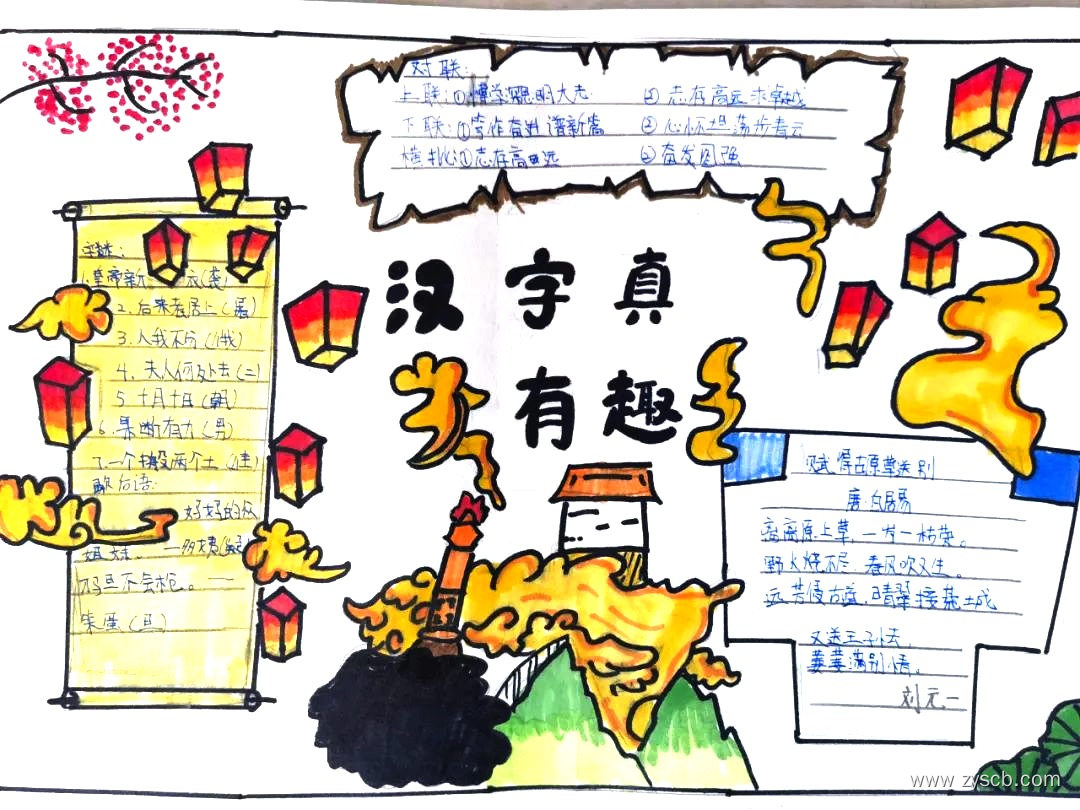 对联:
上联:①博学深思明大志 ②志存高远求卓越
下联:①笃作奋进谱新篇 ②心怀坦荡步青云
横批:①志存高远 ②奋发图强
汉字真
有趣
字谜:
1.皇帝新 衣(袭)
2.后来者居上(屠)
3.人我不分(俄)
4.夫人何处去(二)
5.十月十日(朝)
6.果断有力(男)
7.一个挑两个土(佳)
歇后语:
好好的众
姐妹。
妈
朱
赋得古原草送别
唐·白居易
离离原上草,一岁一枯荣。
野火烧不尽,春风吹又生。
远芳侵古道,晴翠接荒城
又送王孙去,
萋萋满别情。
刘元二
www.zyscb.com